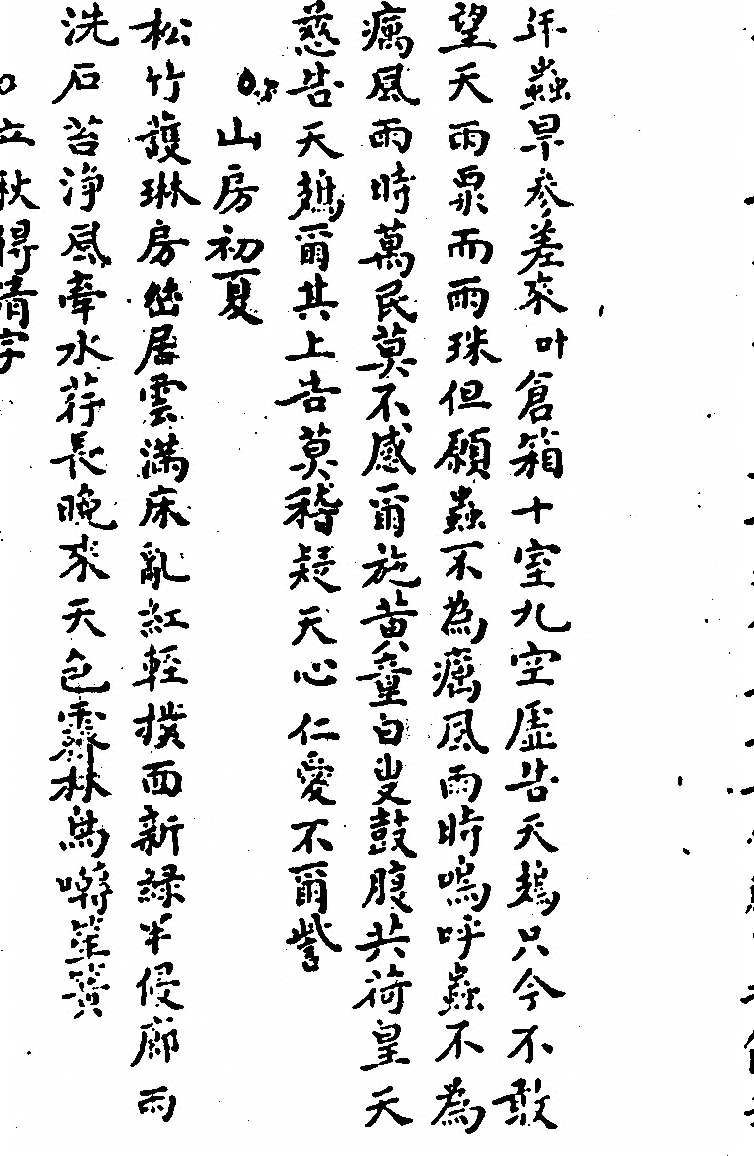 年蟲旱參差來叶倉箱十室九空虛告天鵝只今不敢
望天雨粟而雨珠但願蟲不為癘風雨時嗚呼蟲不為
癘風雨時萬民莫不感爾施黃童白叟鼓腹共荷皇天
慈告天鵝爾其上告莫稽疑天心仁愛不爾訾
山房初夏
松竹護琳房幽居雲滿床亂紅輕撲面新綠半侵廊雨
洗石苔淨風牽水荇長晚來天色霽林鳥囀笙簧
立秋得清字